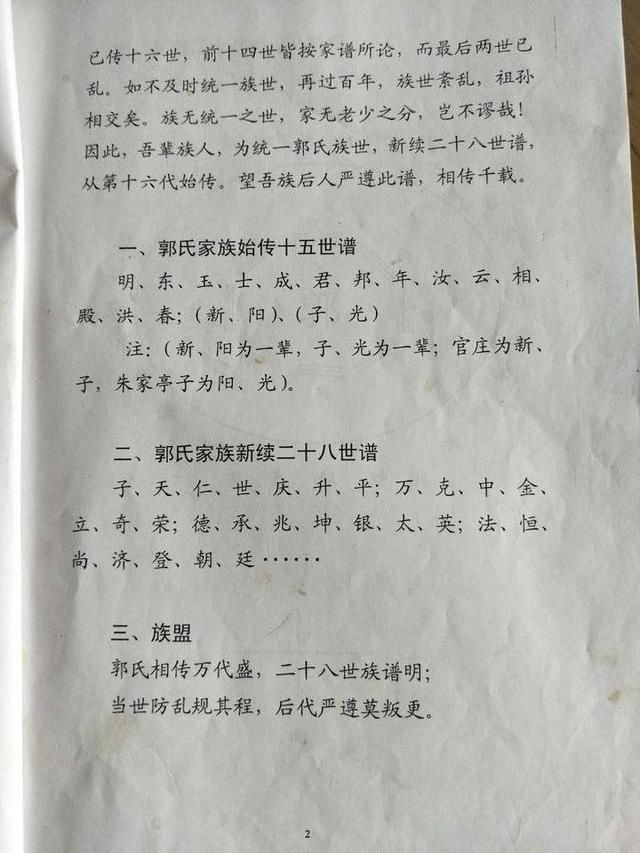 已传十六世，前十四世皆按家谱所论，而最后两世已
乱。如不及时统一族世，再过百年，族世紊乱，祖孙
相交矣。族无统一之世，家无老少之分，岂不谬哉！
因此，吾辈族人，为统一郭氏族世，新续二十八世谱，
从第十六代始传。望吾族后人严遵此谱，相传千载。
一、郭氏家族始传十五世谱
明、东、玉、士、成、君、邦、年、汝、云、相、
殿、洪、春；（新、阳）、（子、光）
注：（新、阳为一辈，子、光为一辈；官庄为新、
子，朱家亭子为阳、光）。
二、郭氏家族新续二十八世谱
子、天、仁、世、庆、升、平；万、克、中、金、
立、奇、荣；德、承、兆、坤、银、太、英；法、恒、
尚、济、登、朝、廷······
三、族盟
郭氏相传万代盛，二十八世族谱明；
当世防乱规其程，后代严遵莫叛更。
2